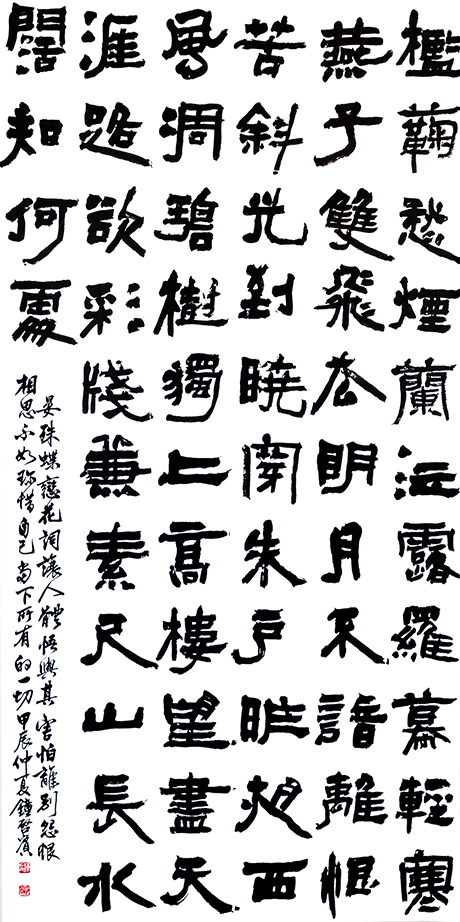 檻蘜愁煙蘭泣露羅幕輕寒
燕子雙飛去明月不諳離恨
苦斜光到曉穿朱戶昨夜西
風凋碧樹獨上高樓望盡天
涯路欲彩牋兼素尺山長水
闊知何處
晏殊蝶戀花詞讓人體悟與其害怕離別怨恨
相思不如珍惜自己當下所有的一切甲辰仲夏